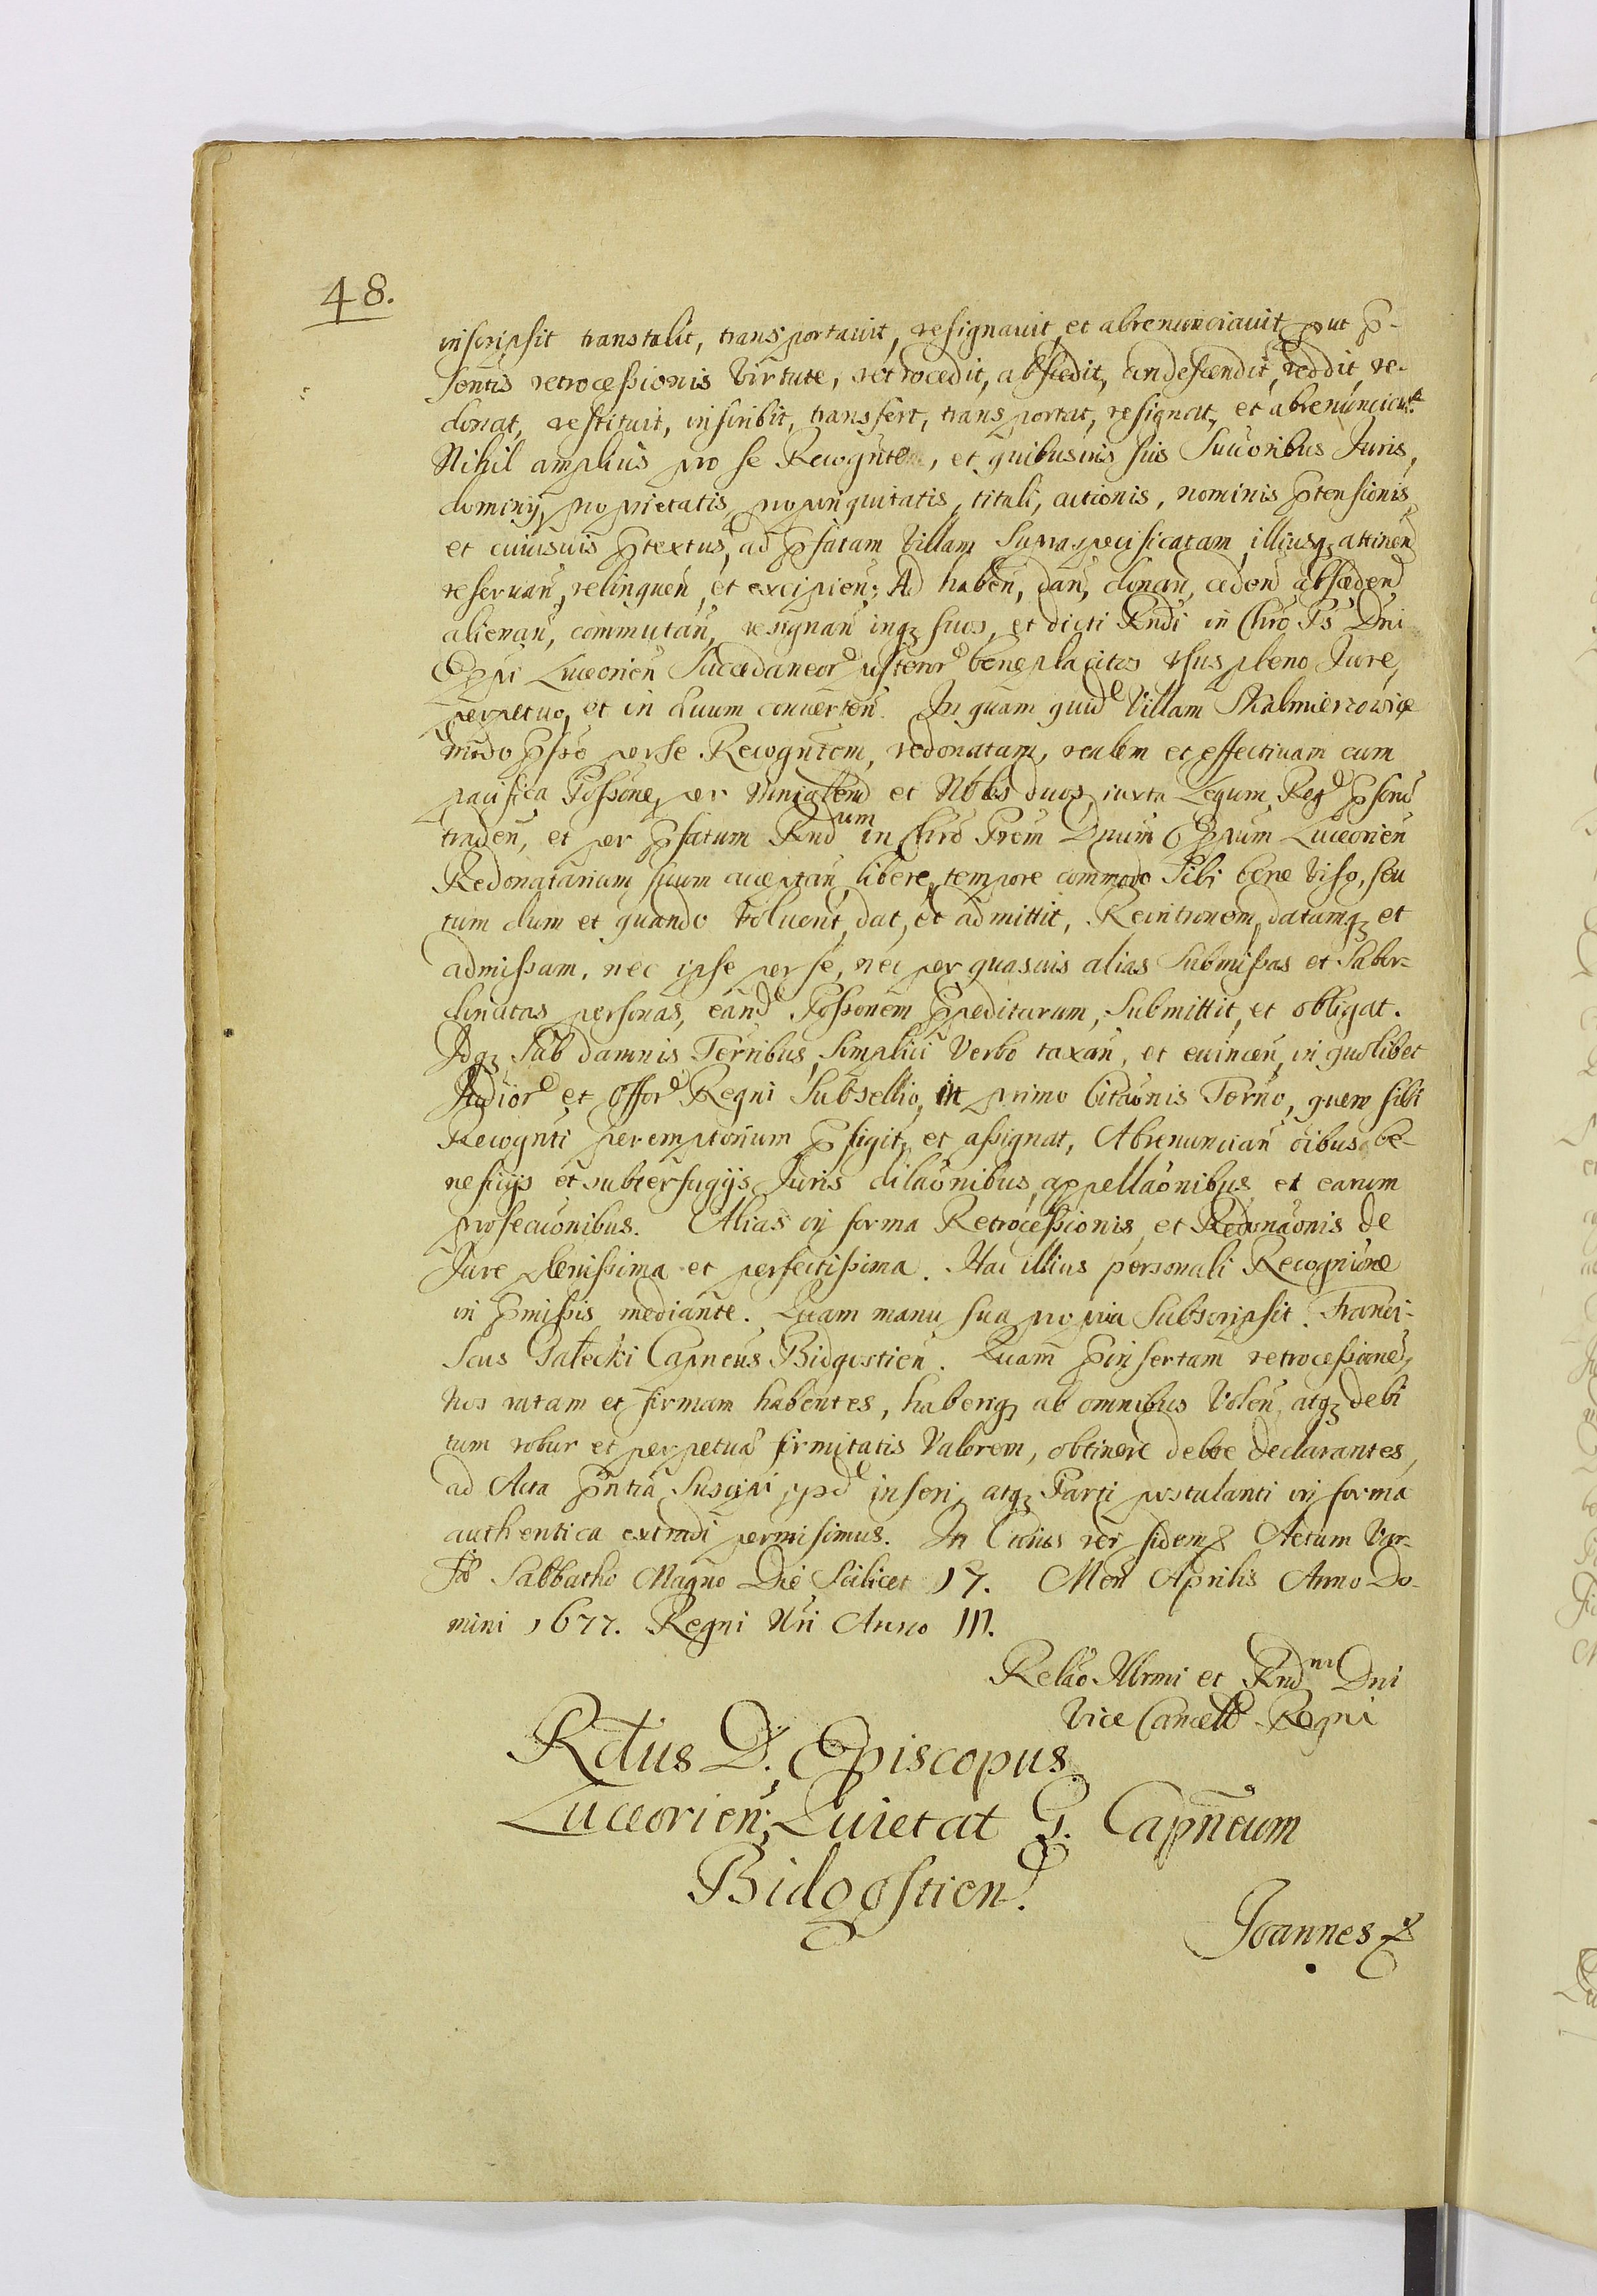 48.
inscripsit transtulit, transportavit, resignavit, et abrenunciavit, put p̄-
sentis retrocessionis Virtute, retrocedit, abscedit, condescendit, reddit, re-
donat, restituit, inscribit, transfert, transportat, resignat, et abrenunciat.
Nihil amplius pro se Recognten, et quibusvis suis Succoribus Juris,
dominij, proprietatis, propinquitatis, tituli, actionis, nominis p̄tensionis,
et cuiusvis p̄textus, ad p̄fatam Villam Supraspecificatam, illiusq; attinen
reservan̄, relinquen̄, et excipien̄; Ad haben̄, dan̄, donan̄, ceden̄ absceden̄
alienan̄, commutan̄, resignan̄ inq; suos, et dicti Rndi in Chro Ps Dni
Eppi Luceorien̄ Succedaneor̄ usteror̄ beneplacitos usus pleno Jure,
perpetuo, et in ævum converten̄. In quam quid̄ Villam Skalmierzowice
modo p̄sso per se Recogntem, redonatam, realem et effectivam cum
pacifica Possone, per Ministlem et Nobles duos, iuxta Legum Regn̄ p̄scrū
traden̄, et per p̄fatum Rndum in Chro Prem Dnum Eppum Luceorien̄
Redonatarium suum acceptan̄, libere, tempore commodo Sibi bene viso, seu
tum dum et quando voluerit, dat, et admittit, Recintronem, datamq; et
admissam, nec ipse per se, nec per quasvis alias Submissas et Subor-
dinatas personas, eand̄ Possonem p̄peditarum, Submittit, et obligat.
Idq; Sub damnis Terribus, Simplici Verbo taxan̄, et evincen̄, in quolibet
Judior̄ et Offor̄ Regni Subsellio, in primo Citaonis Terno, quem sibi
Recognti peremptorium p̄figit, et assignat, Abrenuncian̄ oibus be-
neficijs et subterfugijs Juris dilaonibus, appellaonibus, et earum
prosecuonibus. Alias in forma Retrocessionis, et Redonaonis de
Jure plenissima et perfectissima. Hac illius personali Recognione
in p̄missis mediante. Quam manu sua propria Subscripsit. Franci-
scus Gałecki Capneus Bidgostien̄. Quam p̄insertam retrocessionē,
Nos ratam et firmam habentes, haberiq; ab omnibus Volen̄, atq; debi
tum robur et perpetuā firmitatis Valorem, obtinere debere declarantes,
ad Acta p̄ntia Suscipi, ijsd̄ inseri, atq; Parti postulanti in forma
authentica extradi permisimus. In Cuius rei fidem &. Actum Var-
sæ Sabbatho Magno Die Scilicet 17. Men̄ Aprilis Anno Do-
mini 1677. Regni Nri Anno III.
Relao Illrmi et Rndmi Dni
Vice Cancell̄ Regni
Rdus D. Episcopus
Luceorien̄. Quietat G. Capneum
Bidgostien̄.
Joannes &